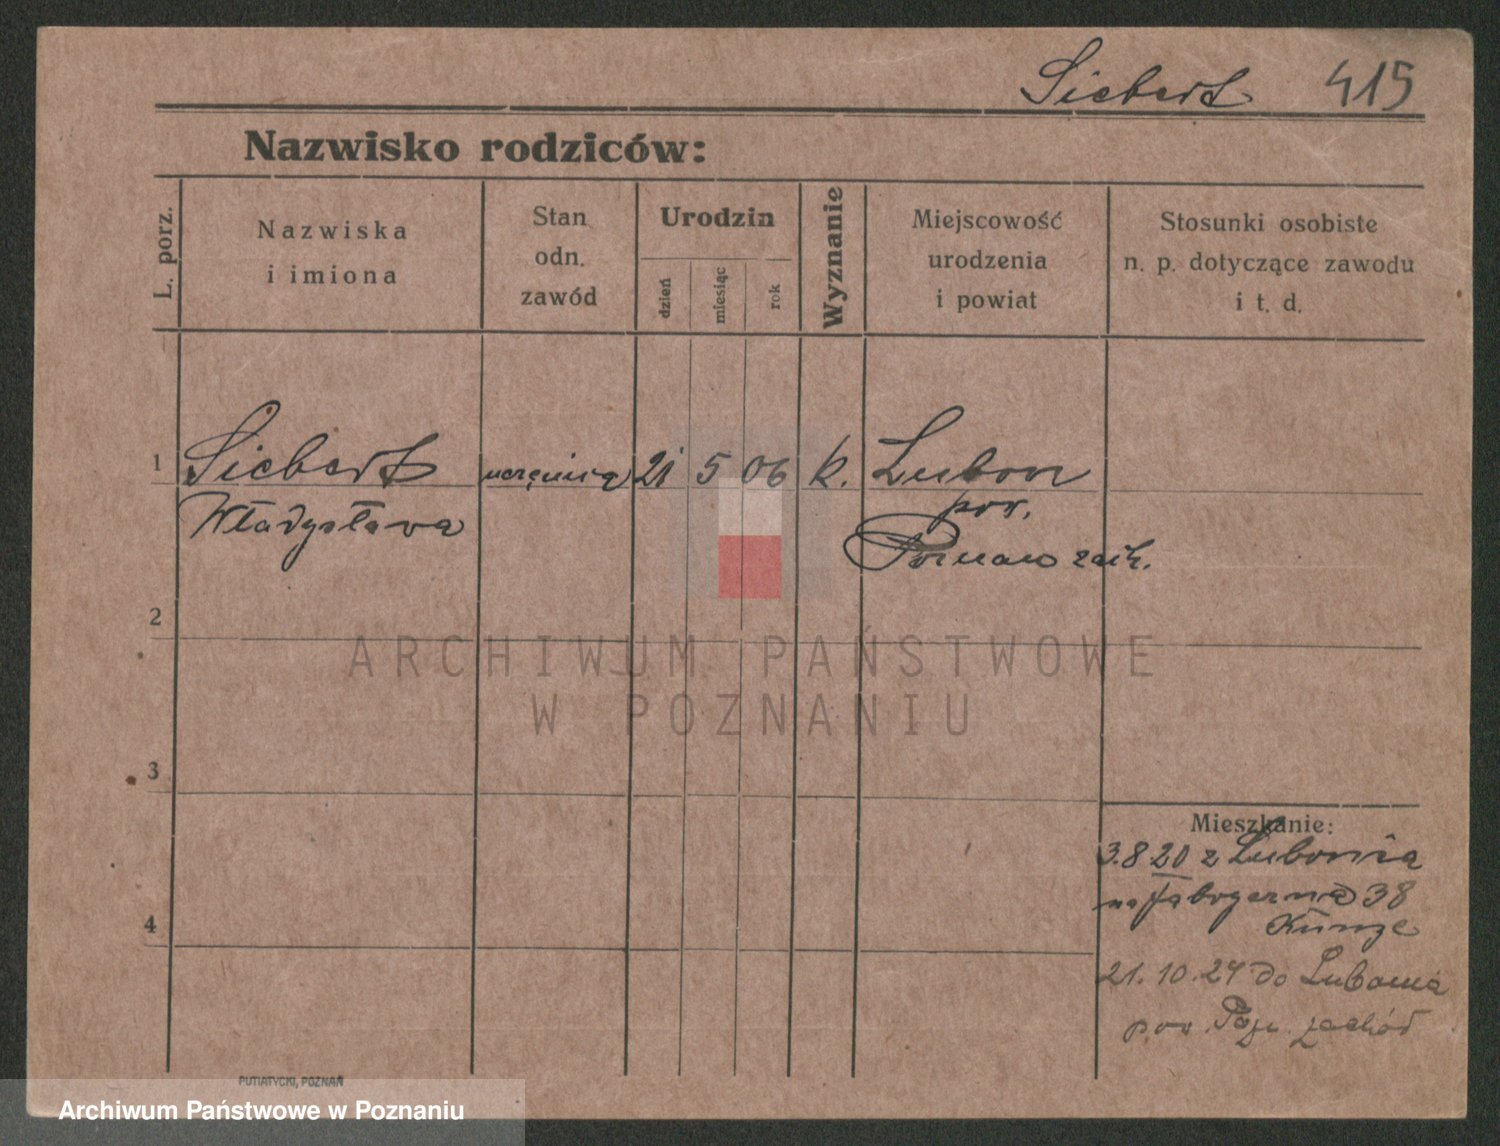 Siebert 415
Nazwisko rodziców:
L. porz.
Nazwiska
i imiona
Stan
odn.
zawód
Urodzin
dzień
miesiąc
rok
Wyznanie
Miejscowość
urodzenia
i powiat
Stosunki osobiste
n. p. dotyczące zawodu
i t. d.
1 Siebert uczęnica 21 5 06 k. Lubon
Władysława pow.
Poznań zach.
2
ARCHIWUM PAŃSTWOWE
W POZNANIU
3
Mieszkanie:
3.8 20 z Lubonia
na 38
Kunze
4
21.10.24 do Lubonia
pow. Pozn. zachód
PUTIATYCKI, POZNAŃ
Archiwum Państwowe w Poznaniu